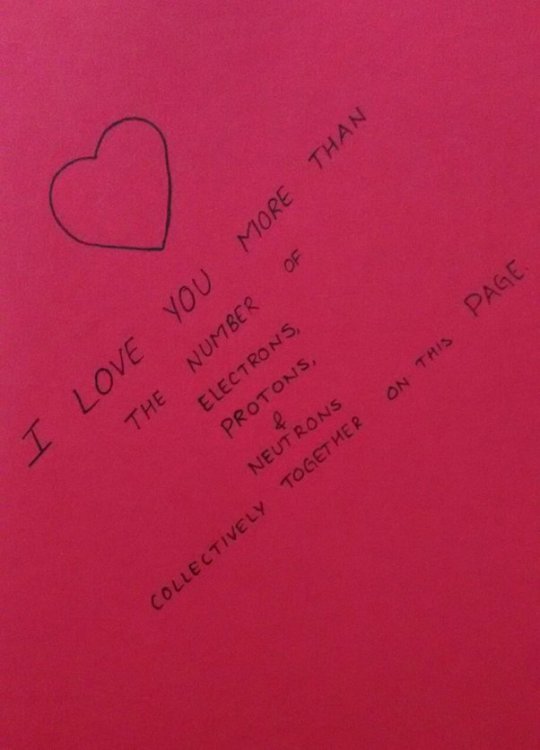 I LOVE YOU MORE THAN
THE NUMBER OF
ELECTRONS,
PROTONS,
&
NEUTRONS
COLLECTIVELY TOGETHER ON THIS PAGE